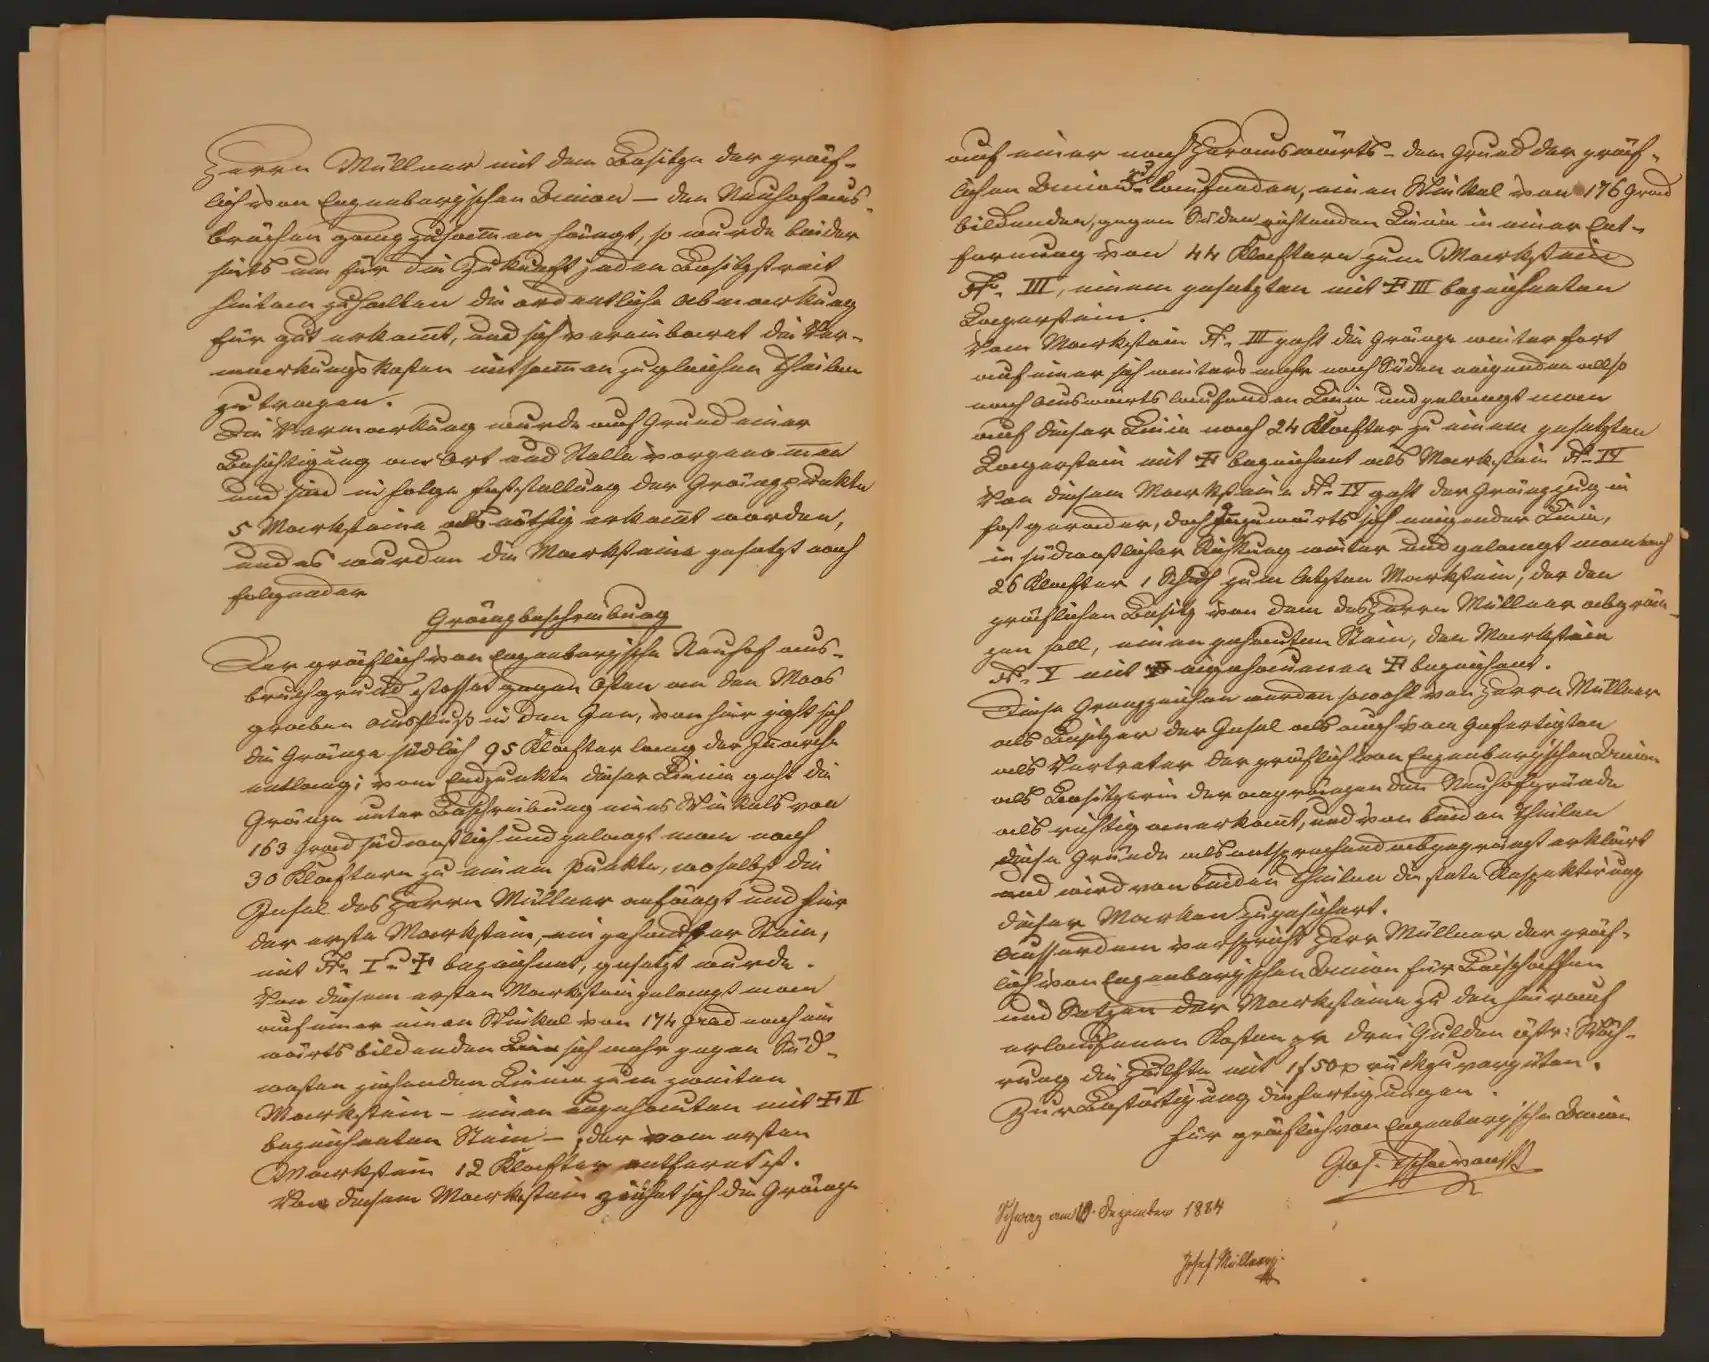 Herrn Müllner mit dem Besitze der gräf-
lich von Enzenbergischen Union — den Neuhofaus-
brüchen ganz zusam̄en hängt, so wurde beider
seits um für die Zukunft jeden Besitzstreit
hintan zu halten die ordentliche Abmarkung
für gut erkan̄t, und sich vereinbaret die Ver-
markungskosten mitsam̄en zu gleichen Theilen
zu tragen.
Die Vermarkung wurde auf Grund einer
Besichtigung an Ort und Stelle vorgenom̄en
und sind in Folge Feststellung der Gränzpunkte
5 Marksteine als nöthig erkan̄t worden,
und es wurden die Marksteine gesetzt nach
folgender
Gränzbeschreibung
Der gräflich von Enzenbergische Neuhof aus-
bruchgrund stosset gegen Osten an den Moos
graben Ausfluß in den Inn, von hier zieht sich
die Gränze südlich 95 Klafter lang der Innarche
entlang; vom Endpunkte dieser Linie geht die
Gränze unter Beschreibung eines Winkels von
163 Grad südwestlich und gelangt man nach
30 Klaftern zu einem Punkte, woselbst die
Insel des Herrn Müllner anfängt und hier
der erste Markstein, ein gehauter Stein,
mit N. I u. Ŧ bezeichnet, gesetzt wurde.
Von diesem ersten Markstein gelangt man
auf einer einen Winkel von 174 Grad nach ein
wärts bildenden sich mehr gegen Süd-
westen ziehenden Linie zum zweiten
Markstein – einen zugehauten mit Ŧ II
bezeichneten Stein –, der vom ersten
Markstein 12 Klafter entfernt ist.
Von diesem Markstein ziehet sich die Gränze
auf einer nach Herauswärts – dem Grund der gräf-
lichen Union zu laufenden, einen Winkel von 176 Grad
bildenden, gegen Süden richtenden Linie in einer Ent-
fernung von 44 Klaftern zum Markstein
N. III, einem gesetzten mit Ŧ III bezeichneten
Lagerstein.
Vom Markstein N. III geht die Gränze weiter fort
auf einer sich weiters mehr nach Süden neigenden also
nach auswärts laufenden Linie und gelangt man
auf dieser Linie nach 24 Klafter zu einem gesetzten
Lagerstein mit Ŧ bezeichnet als Markstein N. IV
Von diesem Marksteine N. IV geht der Gränzzug in
fast gerader, doch sich neigender Linie,
in südwestlicher Richtung weiter und gelangt man nach
26 Klafter 1 Schuh zum letzten Markstein, der den
gräflichen Besitz von dem des Herrn Müllner abgrän-
zen soll, einen gehauten Stein, den Markstein
N. V mit eingehauenen Ŧ bezeichnet.
Diese Granzzeichen werden sowohl von Herrn Müllner
als Besitzer der Insel als auch vom Gefertigten
als Vertreter der gräflich von Enzenbergischen Union
als Besitzerin der angränzenden Neuhofgründe
als richtig anerkan̄t, und von beiden Theilen
diese Gründe als entsprechend abgegränzt erklärt
und wird von beiden Theilen die stete Respektirung
dieser Marken zugesichert.
Ausserdem verspricht Herr Müllner der gräf-
lich von Enzenbergischen Union für Beischaffen
und Setzen der Marksteine zu den hierauf
erlaufenen Kosten pr drei Gulden östr: Wäh-
rung die Hälfte mit 1 f 50 x rückzuvergüten.
Zur Bestätigung die Fertigungen.
Für gräflich von Enzenbergische Union
Schwaz am 19. Dezember 1884
Josef Müllner